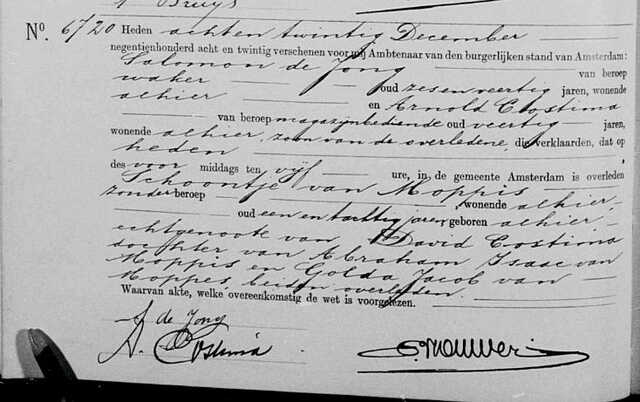 Bruijs
No. 6720 Heden achten twintig December
negentienhonderd acht en twintig verschenen voor mij Ambtenaar van den burgerlijken stand van Amsterdam:
Salomon de Jong van beroep
waker oud zesenveertig jaren, wonende
alhier en Arnold Costima
van beroep magazijnbediende oud veertig jaren,
wonende alhier, zoon van de overledene, die verklaarden, dat op
heden
des voor middags ten vijf ure, in de gemeente Amsterdam is overleden
Schoontje van Moppis
zonder beroep, wonende alhier
oud een en tachtig jaren, geboren alhier,
echtgenoote van David Costima
dochter van Abraham Isaac van
Moppis en Golda Jacob van
Moppes, beiden overleden.
Waarvan akte, welke overeenkomstig de wet is voorgelezen.
S de Jong
A. Costima